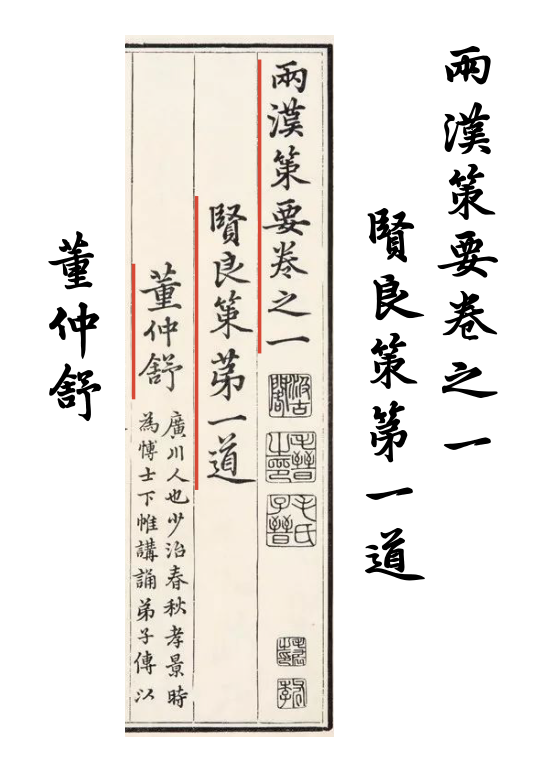 兩漢策要卷之一
賢良策第一道
董仲舒
兩漢策要卷之一
汲古閣
毛晉之印
毛氏子晉
賢良策第一道
董仲舒
廣川人也少治春秋孝景時
為博士下帷講誦弟子傳以